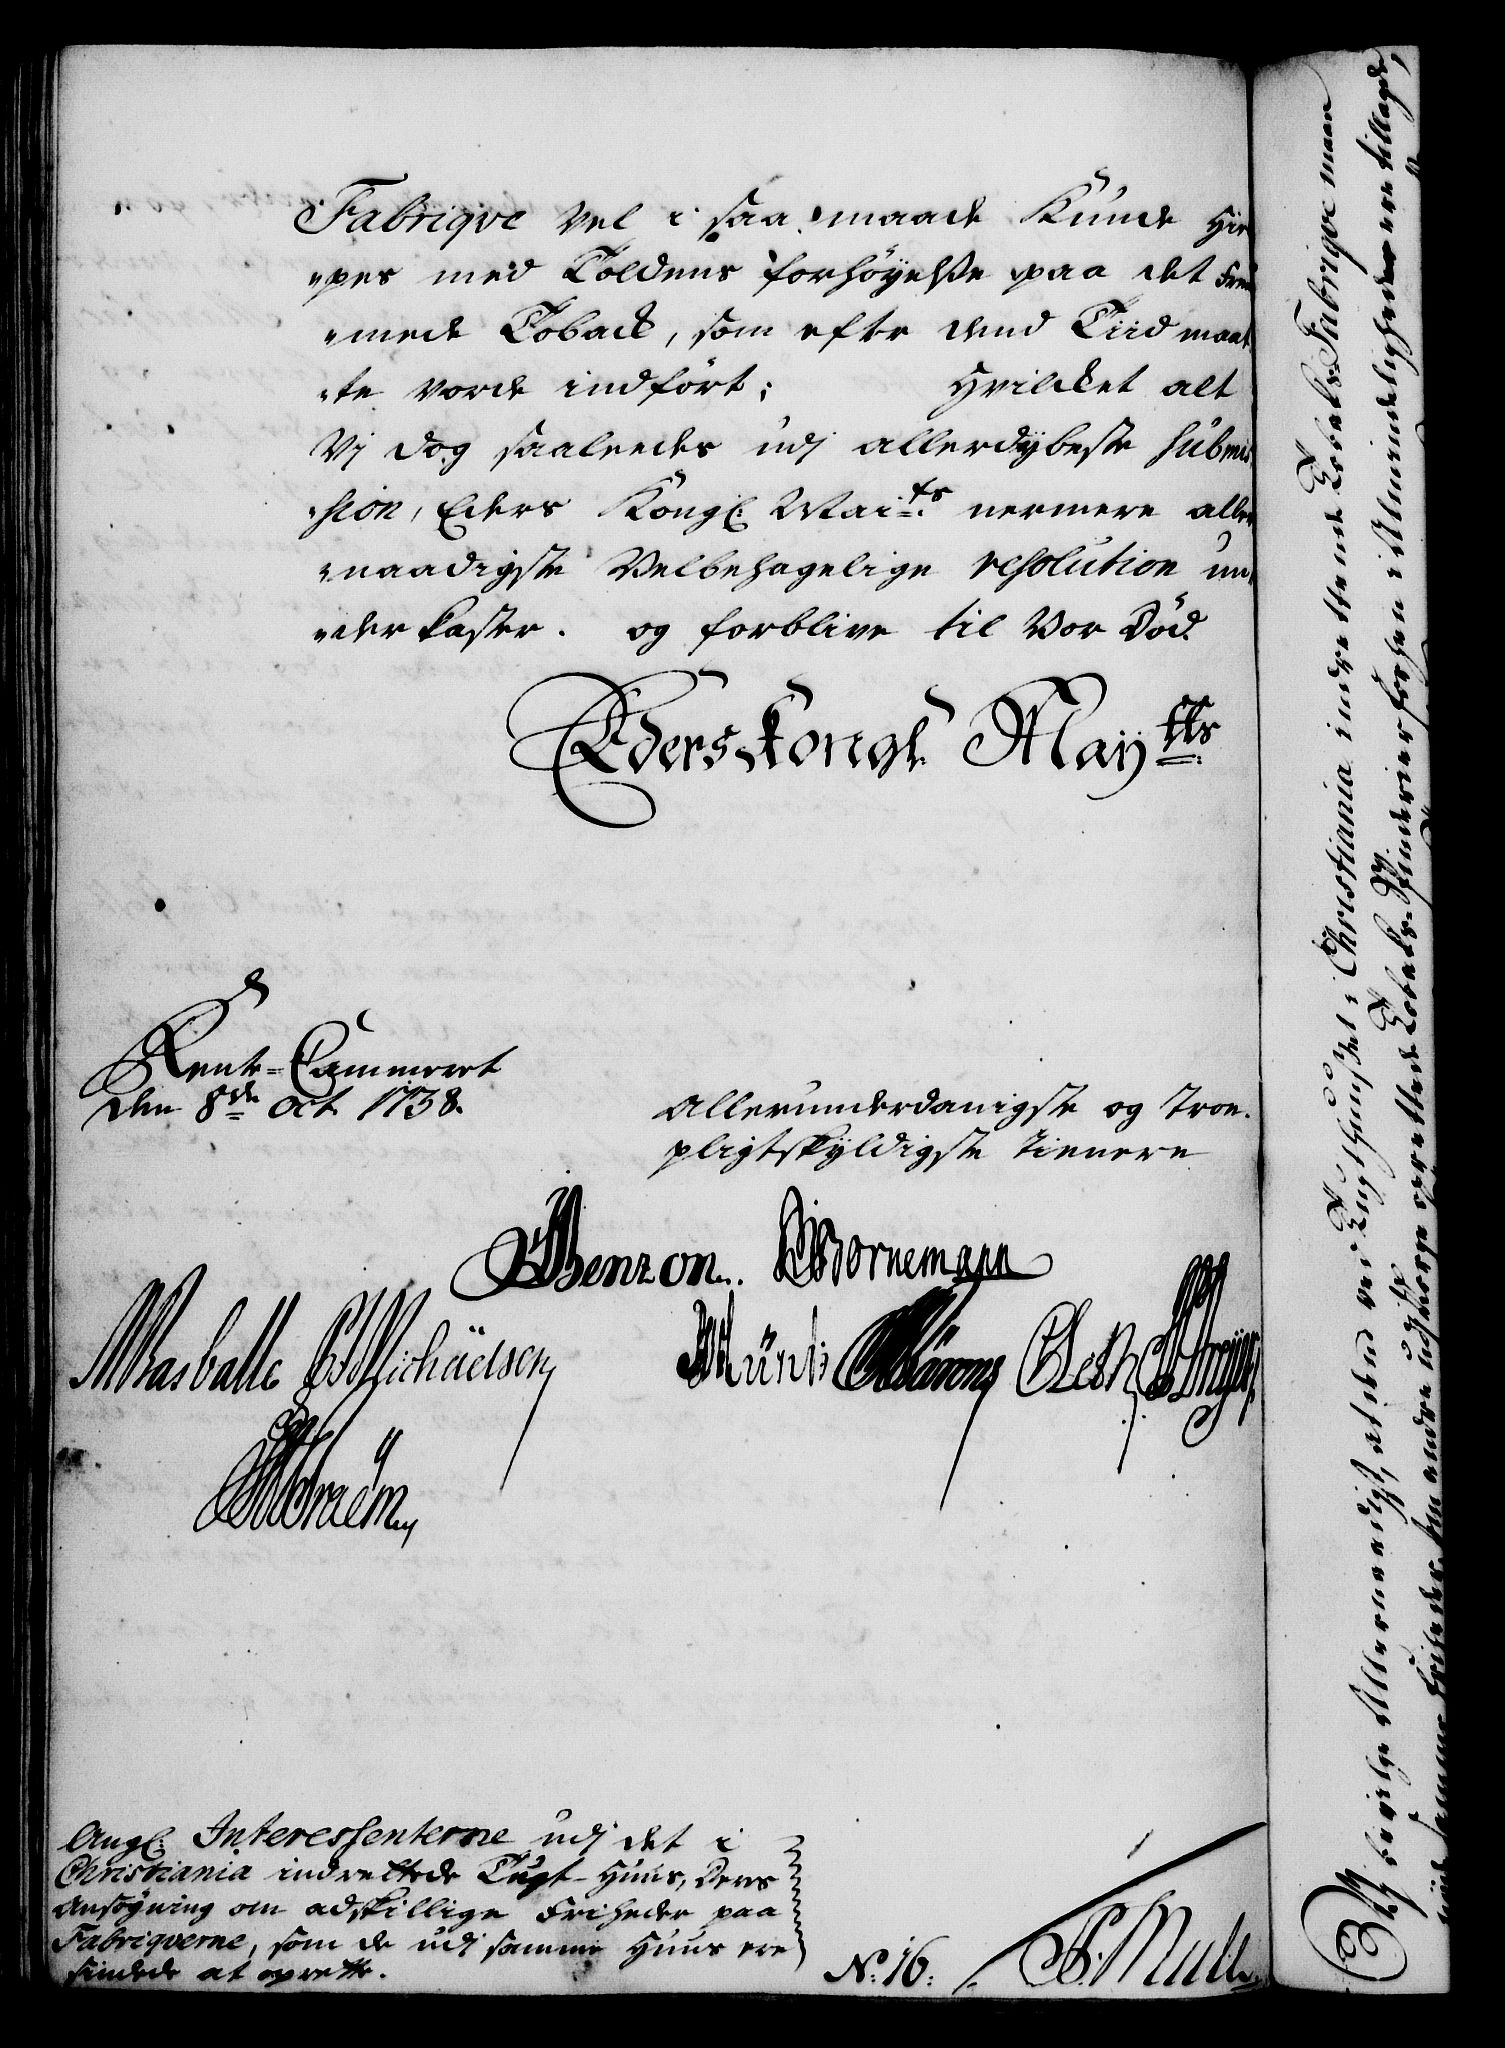 Fabriqve vel i saa maade Kunde hie
"pes med Toldens forhøyelse paa det frem
"mede Toback, som efter dend Tiid maat
"te vorde indført; Hvilcket alt
Vi dog saaledes udi allerdybeste submis
"sion, Eders Kongl: Mai:ts nermere aller
"naadigste Velbehagelige resolution un
"derkaster. og forblive til Vor Död.
Eders Kongl. Mayts
Rente-Cammeret
den 8de Oct. 1738.
Allerunderdanigste og Troe-
pligtskyldigste tienere
Benzon. Bornemann
Michäelsen
N: 16.
Angl: Interessenterne udj det i
Christiania indrettede Tugt-Huus, Deres
Ansögning om adskillige Friheder paa
Fabriqverne, som de udj samme Huus ere
sindede at oprette.
Vj bevilge Allernaadigst, at den ved Tugthuuset i Christiania indrettende Tobaks-Fabriqve maae
nyde samme Friheder, som andre udj Norge oprettede Tobaks-Spinderier forhen i Almindelighed ere tillagde,